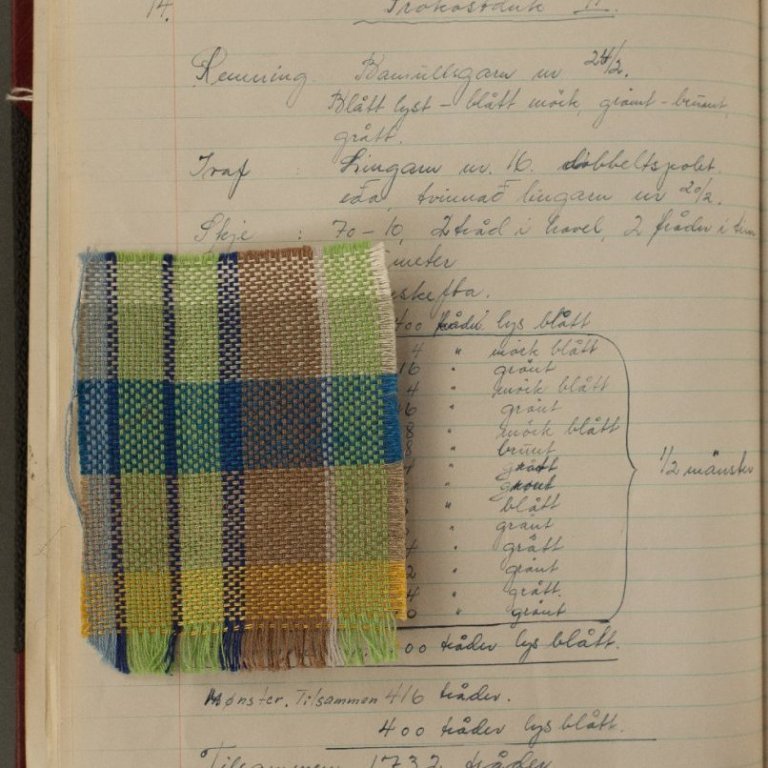 14. Frokostduk II.
Renning Bomullsgarn nr 24/2.
Blått lyst – blått mörk, grönt – brunt,
grått.
Iraf : Lingarn nr. 16. dobbeltspolet.
eda, tvinnad lingarn nr 20/2.
Skje : 70–10, 2 tråd i hovel, 2 tråder i tinn
meter
400 tråder lys blått
4 " mörk blått
16 " grönt
4 " mörk blått
6 " grönt
8 " mörk blått
8 " brunt
4 " grått
" grönt
" blått
" grönt
4 " grått
2 " grönt
4 " grått.
0 " grönt
1/2 mönster
00 tråder lys blått.
Mønster. Tilsammen 416 tråder.
400 tråder lys blått.
Tilsammen 1732 tråder